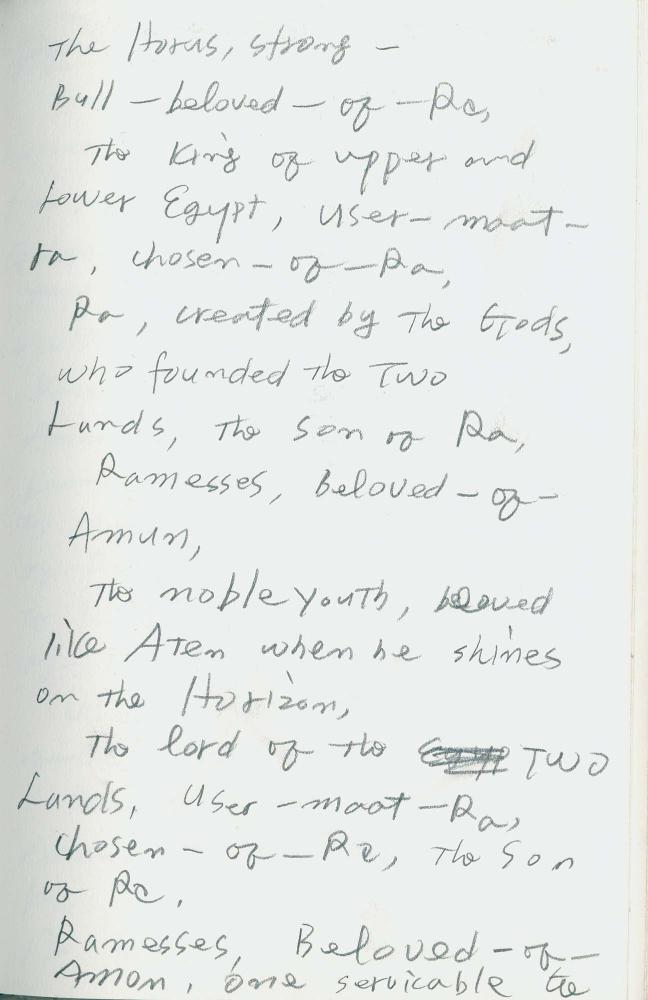 The Horus, strong –
Bull – beloved – of – Re,
The King of upper and
Lower Egypt, User – maat –
ra, chosen – of – Ra,
Ra, created by The Gods,
who founded the Two
Lands, The Son of Ra,
Ramesses, Beloved – of –
Amun,
The noble youth, beloved
like Aten when he shines
on the Horizon,
The lord of the TWO
Lands, User – maat – Ra,
chosen – of – Re, The Son
of Re,
Ramesses, Beloved – of –
Amon, one servicable to